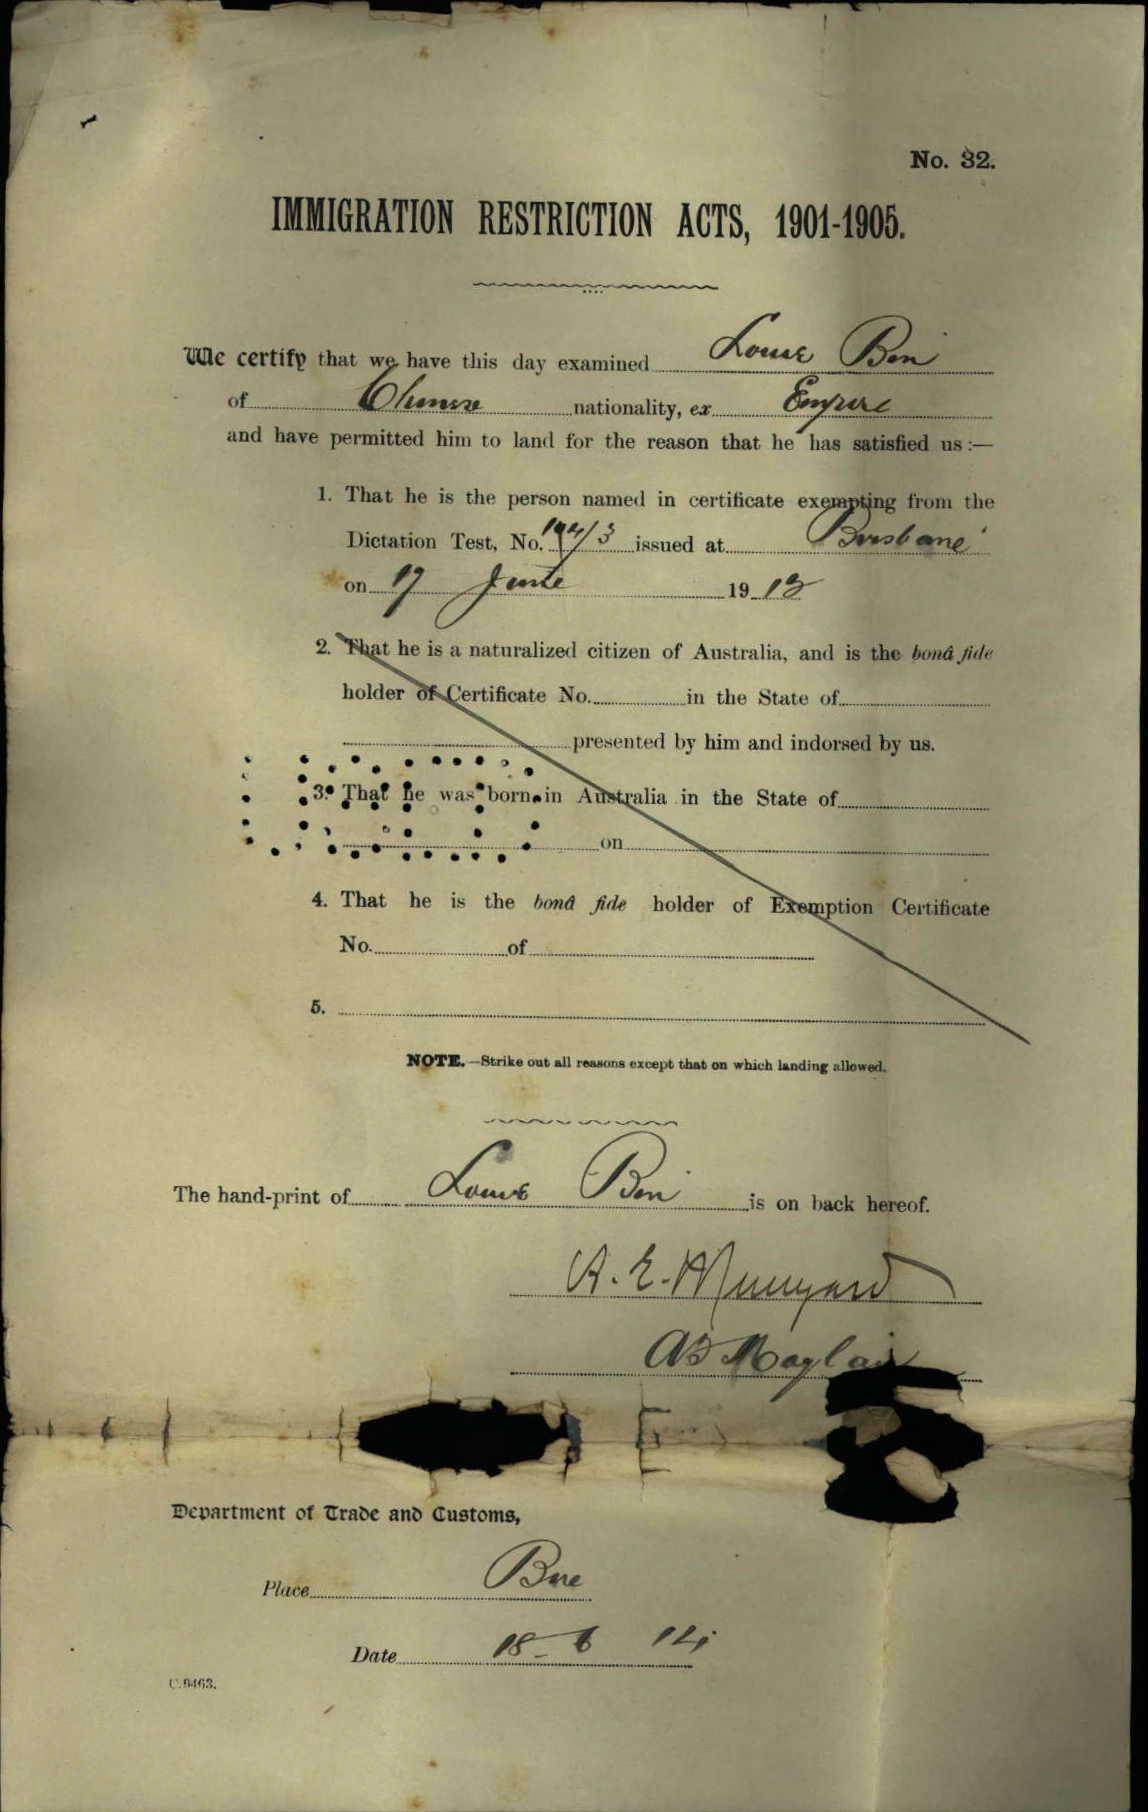 No. 32.
IMMIGRATION RESTRICTION ACTS, 1901-1905.
We certify that we have this day examined Louie Bin
of Chinese nationality, ex Empire
and have permitted him to land for the reason that he has satisfied us:—
1. That he is the person named in certificate exempting from the
Dictation Test, No. 194/3 issued at Brisbane
on 17 June 1913
2. That he is a naturalized citizen of Australia, and is the bonâ fide
holder of Certificate No. in the State of
presented by him and indorsed by us.
3. That he was born in Australia in the State of
on
4. That he is the bonâ fide holder of Exemption Certificate
No. of
5.
NOTE.—Strike out all reasons except that on which landing allowed.
The hand-print of Louie Bin is on back hereof.
A. E. Munyard
Department of Trade and Customs,
Place Bne
Date 18-6 14
C.9463.